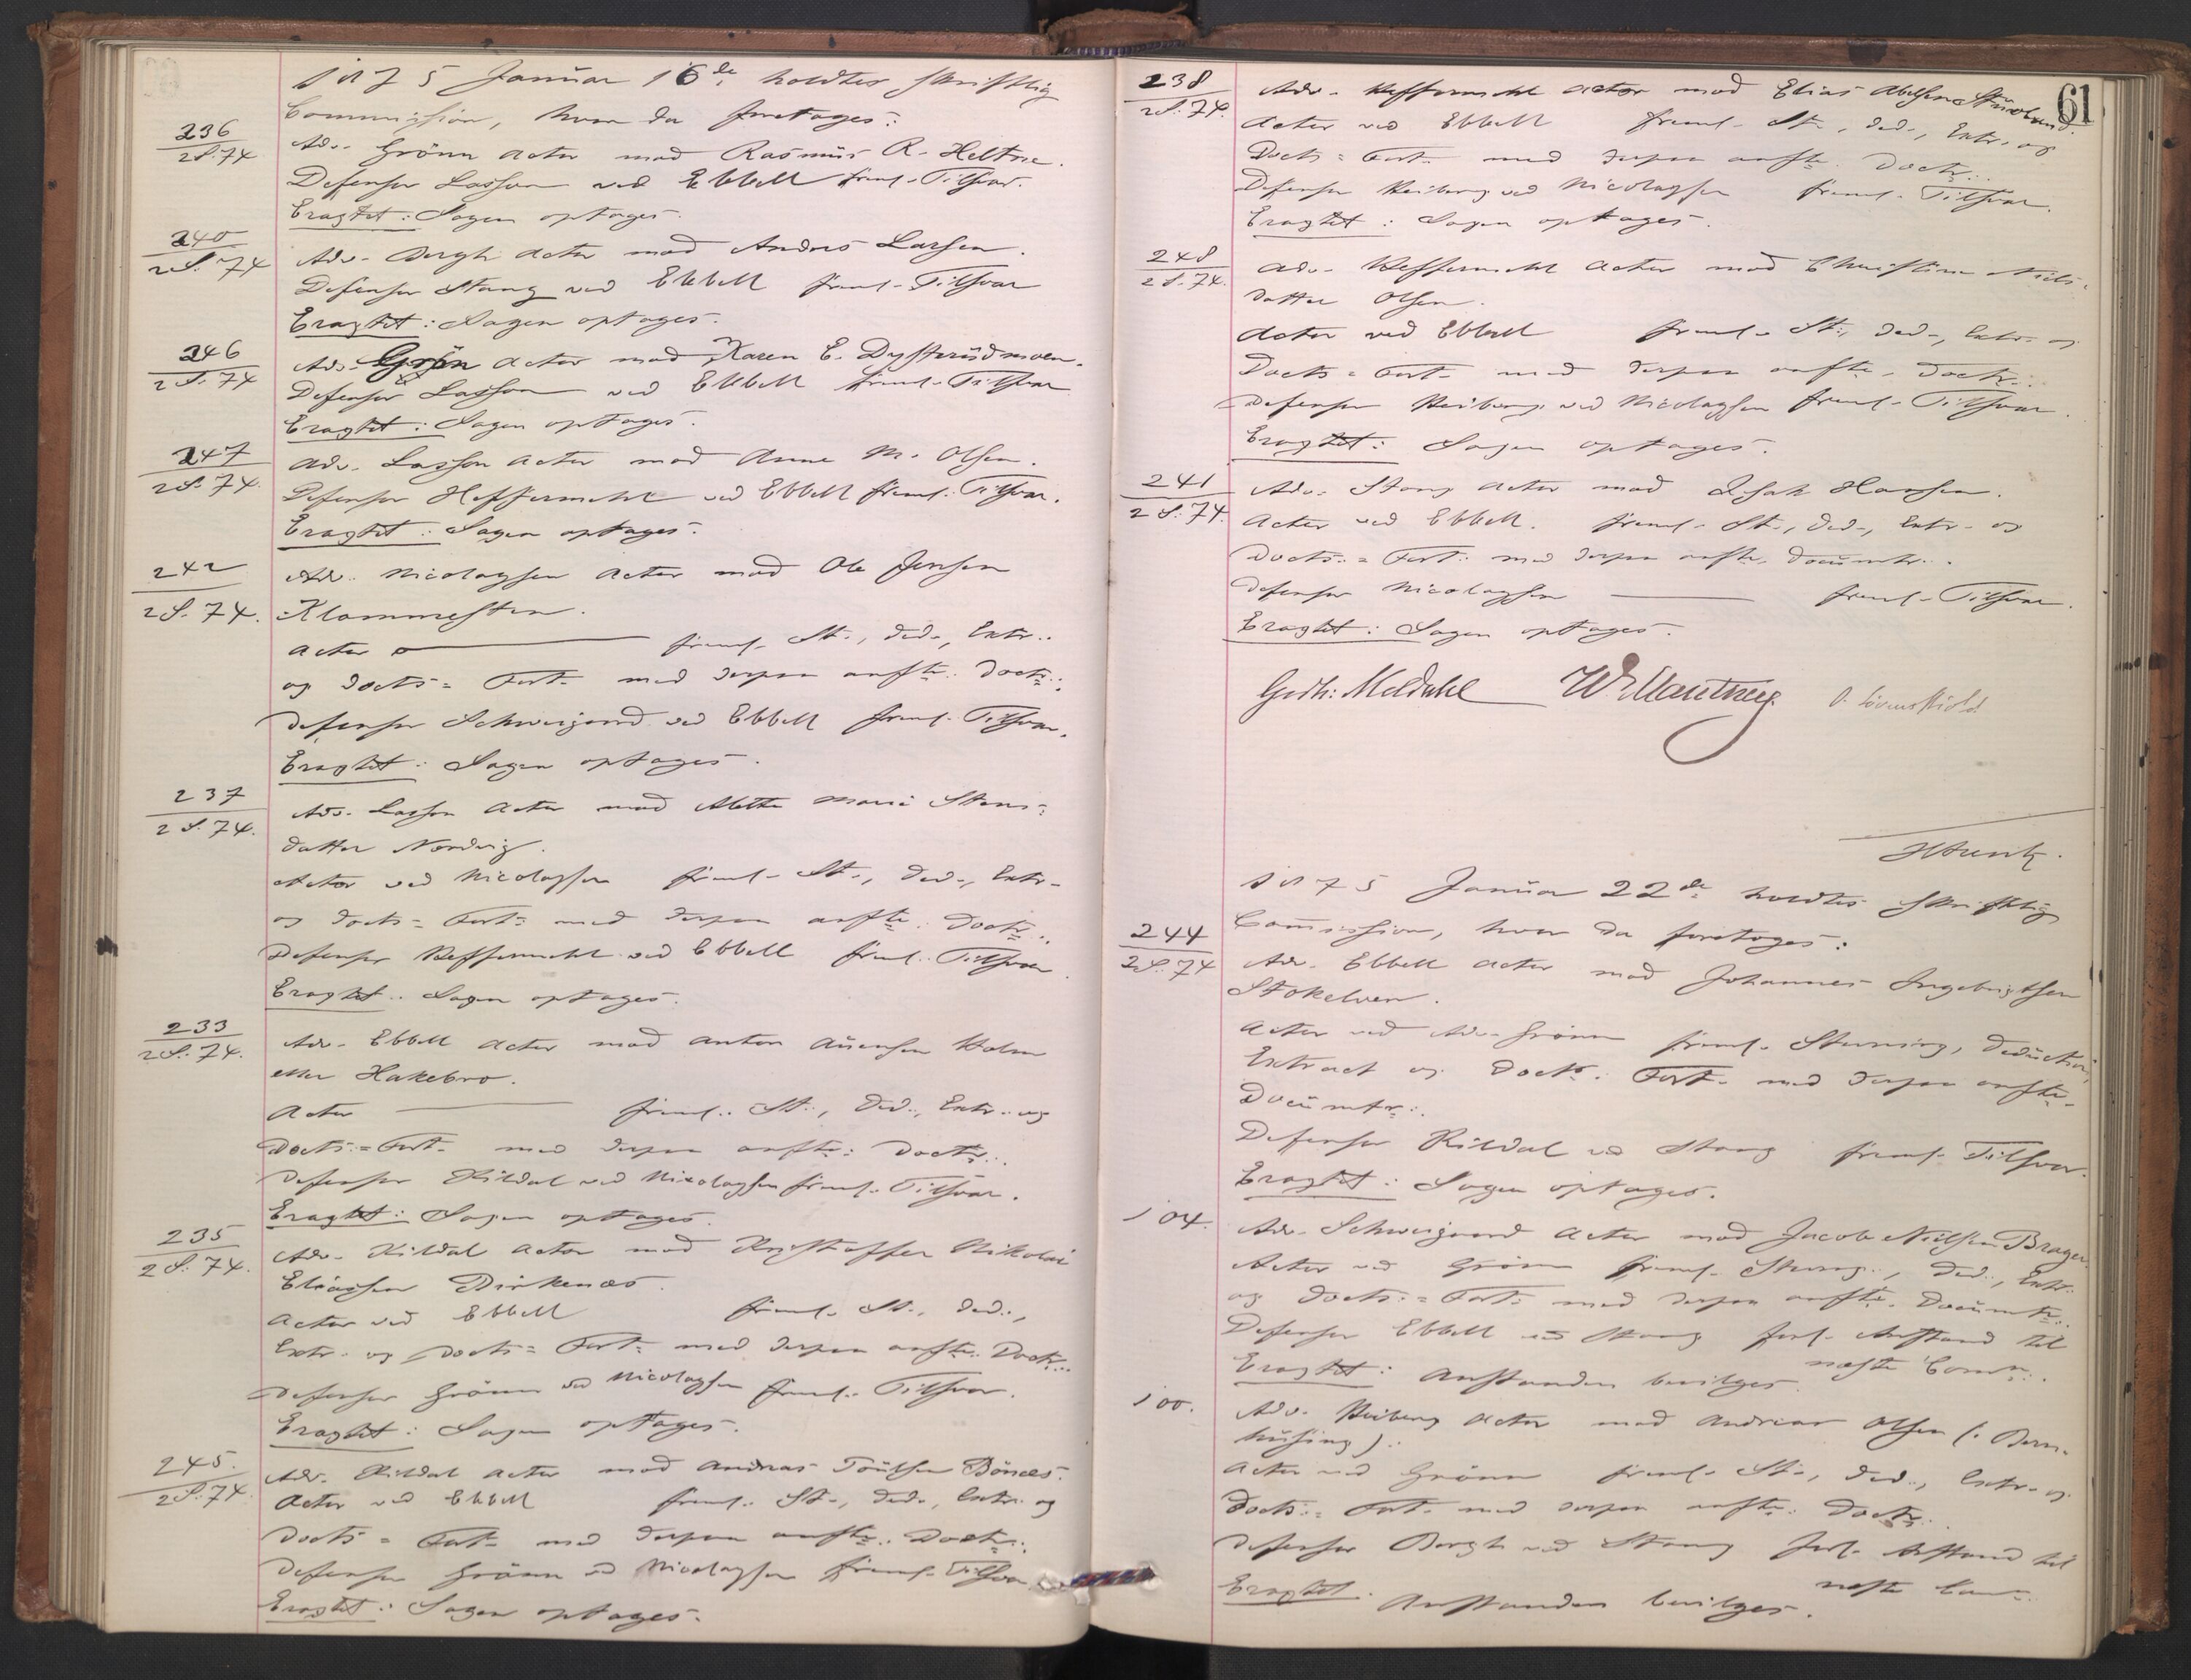 1875 Januar 16de holdtes skriftlig
Commission, hvor da foretoges:
236
2 S. 74
Adv. Grönn Actor mod Rasmus R. Heltne.
Defensor Lasson ved Ebbell freml. Tilsvar.
Eragtet: Sagen optages.
240
2 S. 74
Adv. Bergh Actor mod Anders Larsen.
Defensor Stang ved Ebbell freml. Tilsvar
Eragtet: Sagen optages.
246
2 S. 74
Adv. Grönn Actor mod Karen E. Dysterüdmoen.
Defensor Lasson ved Ebbell freml. Tilsvar
Eragtet: Sagen optages.
247
2 S. 74.
Adv. Lasson Actor mod Anne M. Olsen.
Defensor Heffermehl ved Ebbell freml. Tilsvar.
Eragtet: Sagen optages.
242
2 S. 74.
Adv. Nicolaysen Actor mod Ole Jensen
Klommesten.
Actor freml. St., Ded., Extr.
og Docts= Fort. med derpaa anfte. Doctr.
Defensor Schweigaard ved Ebbell freml. Tilsvar.
Eragtet: Sagen optages.
237
2 S. 74.
Adv. Lasson Actor mod Alette Marie Stens=
datter Nordvig.
Actor ved Nicolaysen freml. St., Ded., Extr.
og Docts= Fort. med derpaa anfte. Doctr.
Defensor Heffermehl ved Ebbell freml. Tilsvar.
Eragtet. Sagen optages.
233
2 S. 74.
Adv. Ebbell Actor mod Anton Auensen Holm
eller Hakebro.
Actor freml. St., Ded., Extr. og
Docts= Fort. med derpaa anfte. Doctr.
Defensor Kildal ved Nicolaysen freml. Tilsvar.
Eragtet: Sagen optages.
235
2 S. 74.
Adv. Kildal Actor mod Kristoffer Nikolai
Eliassen Dirkenæs.
Actor ved Ebbell freml. St., Ded.,
Extr. og Docts= Fort. med derpaa anfte. Doctr.
Defensor Grönn ved Nicolaysen freml. Tilsvar.
Eragtet: Sagen optages.
245.
2 S. 74.
Adv. Kildal Actor mod Andreas Toülsen Bönæs.
Actor ved Ebbell freml. St., Ded., Extr. og
Docts= Fort. med derpaa anfte. Doctr.
Defensor Grönn ved Nicolaysen freml. Tilsvar
Eragtet: Sagen optages.
61
238
2 S. 74.
Adv. Heffermehl Actor mod Elias Abelsen
Actor ved Ebbell freml. St., Ded., Extr. og
Docts= Fort. med derpaa anfte. Doctr.
Defensor Heiberg ved Nicolaysen freml. Tilsvar.
Eragtet: Sagen optages.
248
2 S. 74.
Adv. Heffermehl Actor mod Christine Niels-
datter Olsen.
Actor ved Ebbell freml. St., Ded., Extr. og
Docts= Fort. med derpaa anfte. Doctr.
Defensor Heiberg ved Nicolaysen freml. Tilsvar.
Eragtet: Sagen optages.
241
2 S. 74.
Adv. Stang Actor mod Isak Hansen.
Actor ved Ebbell. freml. St., Ded., Extr. og
Docts.= Fort. med derpaa anfte. Documtr.
Defensor Nicolaysen freml. Tilsvar.
Eragtet: Sagen optages.
Gerh: Meldahl W Manthey. O. Løvenskiold
1875 Januar 22de holdtes skriftlig
Commission, hvor da foretoges:
244
2 S. 74
Adv. Ebbell Actor mod Johannes Ingebrigtsen
Stokelven.
Actor ved Adv. Grönn freml. Stevning, Deduction,
Extract og Docts. Fort. med derpaa anfte.
Documtr.
Defensor Kildal ved Stang freml. Tilsvar.
Eragtet: Sagen optages.
104.
Adv. Schweigaard Actor mod Jacob Nielsen Brager
Actor ved Grönn freml. Stevng., Ded., Extr.
og Docts.= Fort. med derpaa anfte. Documtr.
Defensor Ebbell ved Stang forl. Anstand til
næste Comm.
Eragtet: Anstanden bevilges.
100.
Adv. Heiberg Actor mod Andreas Olsen (
hüsing).
Actor ved Grönn freml. St., Ded., Extr. og
Docts.= Fort. med derpaa anfte. Doctr.
Defensor Bergh ved Stang forl. Anstand til
næste Com.
Eragtet. Anstanden bevilges.